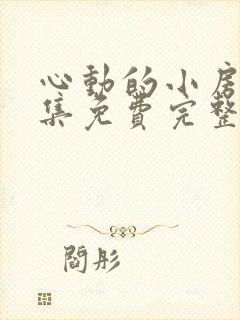 心動的小房
集免費完整
閻彤